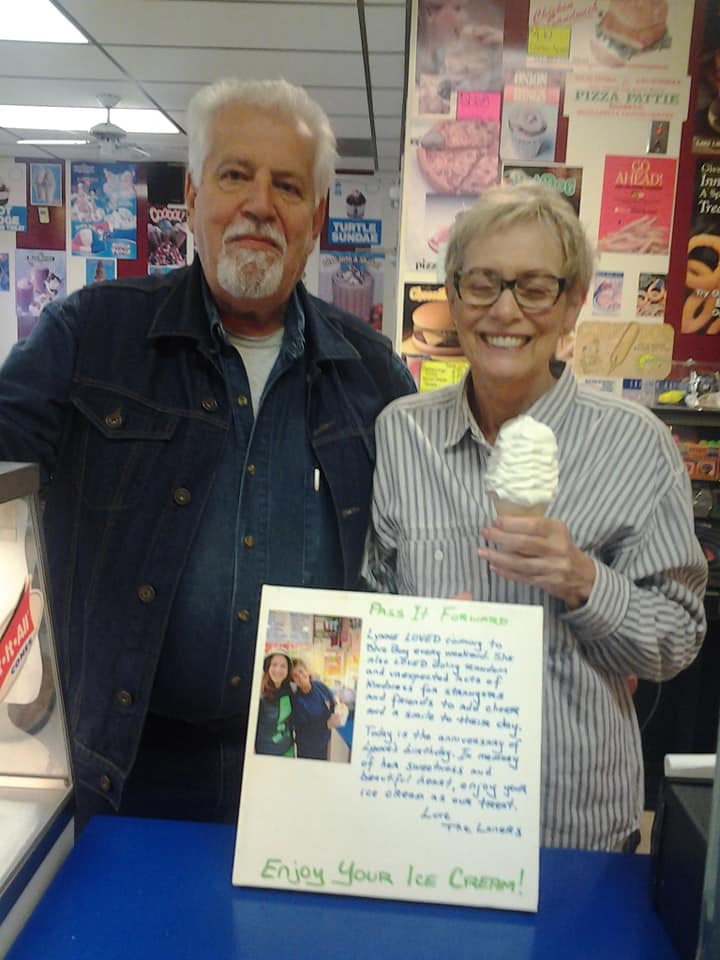 Chicken
Sandwich
ONION
RINGS
PIZZA PATTIE
GO
AHEAD!
TURTLE
SUNDAE
-It-All
CONES
Pass It Forward
Lynne LOVED coming to
Blue Boy every weekend. She
also LOVED doing random
and unexpected acts of
kindness for strangers
and friends to add cheer
and a smile to their day.
Today is the anniversary of
Lynne's birthday. In memory
of her sweetness and
beautiful heart, enjoy your
ice cream as our treat.
Love
The
Enjoy Your Ice Cream!